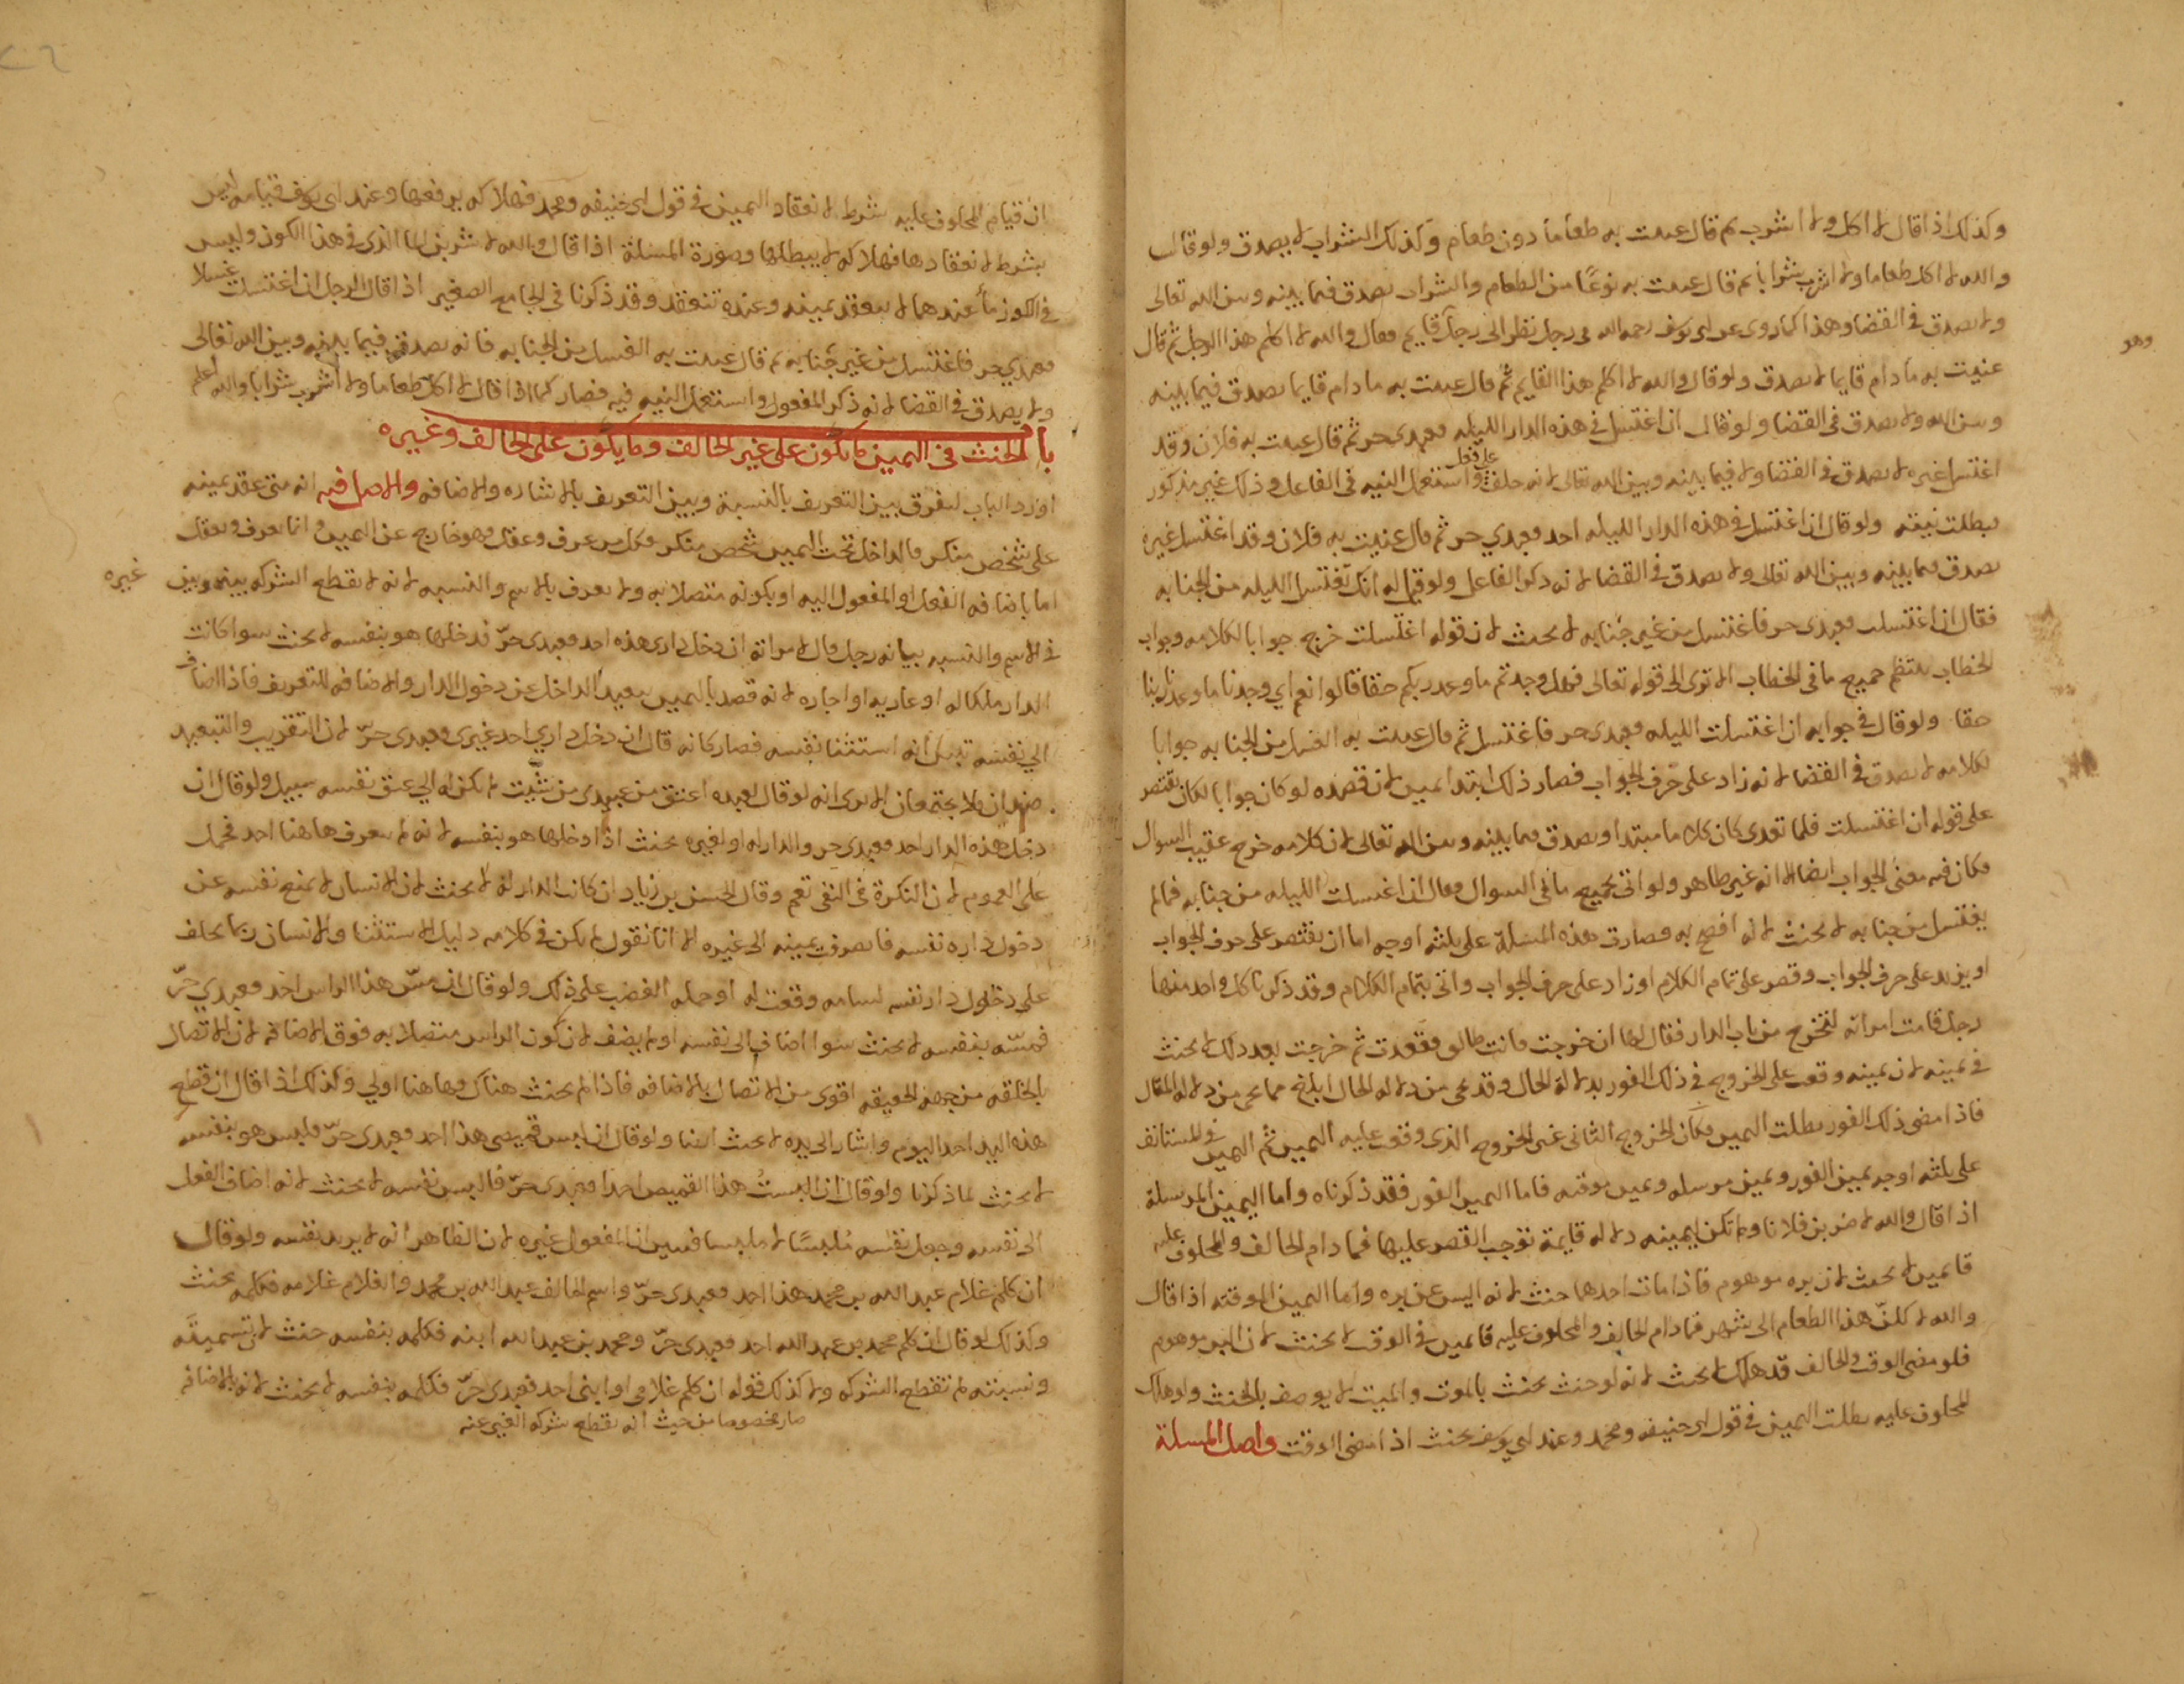 وكذلك اذا قال لا اكل ولا اشرب ثم قال عنيت به طعاما دون طعام وكذلك الشراب لا يصدق ولو قال
والله لا اكل طعاما ولا اشرب شرابا ثم قال عنيت به نوعا من الطعام والشراب يصدق فيما بينه وبين الله تعالى
ولا يصدق في القضا وهذا كما روى عن ابى يوسف رحمه الله في رجل نظر الى رجل قايم فقال والله لا اكلم هذا الرجل ثم قال
وهو
عنيت به ما دام قايما لا يصدق ولو قال والله لا اكلم هذا القايم ثم قال عنيت به ما دام قايما يصدق فيما بينه
وبين الله ولا يصدق في القضا ولو قال ان اغتسل في هذه الدار الليله فعبدى حر ثم قال عنيت به فلان وقد
اغتسل غيره لا يصدق في القضا ولا فيما بينه وبين الله تعالى لانه حلف على فعل واستعمل النيه في الفاعل وذلك غير مذكور
بطلت نيته ولو قال ان اغتسل في هذه الدار الليله احد فعبدي حر ثم قال عنيت به فلان وقد اغتسل غيره
يصدق فيما بينه وبين الله تعالى ولا يصدق في القضا لانه ذكر الفاعل ولو قيل له انك تغتسل الليله من الجنابه
فقال ان اغتسلت فعبدى حر فاغتسل من غير جنابه لا يحنث لان قوله اغتسلت خرج جوابا لكلامه وجواب
الخطاب ينتظم جميع ما في الخطاب الا ترى الى قوله تعالى فهل وجدتم ما وعد ربكم حقا قالوا نعم اي وجدنا ما وعدنا ربنا
حقا ولو قال في جوابه ان اغتسلت الليله فعبدى حر فاغتسل ثم قال عنيت به الغسل من الجنابه جوابا
لكلامه لا يصدق في القضا لانه زاد على حرف الجواب فصار ذلك ابتدا يمين لان قصده لو كان جوابا لكان يقتصر
على قوله ان اغتسلت فلما تعدى كان كلاما مبتدا ويصدق فيما بينه وبين الله تعالى لان كلامه خرج عقيب السوال
فكان فيه معنى الجواب ايضا الا انه غير ظاهر ولو اتى بجميع ما في السوال وقال ان اغتسلت الليله من جنابه فمالم
يغتسل من جنابه لا يحنث لانه افصح به فصارت هذه المسئلة على ثلثه اوجه اما ان يقتصر على حرف الجواب
او يزيد على حرف الجواب وقصر على تمام الكلام او زاد على حرف الجواب واتى بتمام الكلام وقد ذكرنا كل واحد منها
رجل قامت امراته لتخرج من باب الدار فقال لها ان خرجت فانت طالق فقعدت ثم خرجت بعد ذلك لا يحنث
في يمينه لان يمينه وقعت على الخروج في ذلك الفور بدلالة الحال وقد تجى من دلاله الحال ابلغ مما يجى من دلاله المقال
فاذا مضى ذلك الفور بطلت اليمين فكان الخروج الثانى غير الخروج الذى وقف عليه اليمين ثم اليمين في المستانف
على ثلثه اوجه يمين الفور ويمين مرسله ويمين موقته فاما اليمين الفور فقد ذكرناه واما اليمين المرسلة
اذا قال والله لاضربن فلانا ولم تكن ليمينه دلاله قايمة توجب القصر عليها فما دام الحالف والمحلوف عليه
قايمين لا يحنث لان بره موهوم فاذا مات احدهما حنث لانه ايس عن بره واما اليمين الموقته اذا قال
والله لاكلن هذا الطعام الى شهر فما دام الحالف والمحلوف عليه قايمين في الوقت لا يحنث لان البر موهوم
فلو مضى الوقت والحالف قد هلك لا يحنث لانه لو حنث يحنث بالموت والميت لا يوصف بالحنث ولو هلك
المحلوف عليه بطلت اليمين في قول ابى حنيفه ومحمد وعند ابى يوسف يحنث اذا مضى الوقت واصل المسلة
ان قيام المحلوف عليه شرط لانعقاد اليمين في قول ابى حنيفه ومحمد فهلاكه يرفعها وعند ابى يوسف قيامه ليس
بشرط لانعقادها فهلاكه لا يبطلها وصورة المسئلة اذا قال والله لاشربن الما الذى في هذا الكوز وليس
في الكوز ما عندهما لا ينعقد يمينه وعنده تنعقد وقد ذكرنا في الجامع الصغير اذا قال الرجل ان اغتسلت غسلا
فعبدي حر فاغتسل من غير جنابه ثم قال عنيت به الغسل من الجنابه فانه يصدق فيما بينه وبين الله تعالى
ولا يصدق في القضا لانه ذكر المفعول واستعمل النيه فيه فصار كما اذا قال لا اكل طعاما ولا اشرب شرابا والله اعلم
باب الحنث في اليمين ما يكون على غير الحالف وما يكون على الحالف وغيره
اورد الباب ليفرق بين التعريف بالنسبة وبين التعريف بالاشاره والاضافه والاصل فيه انه متى عقد يمينه
على شخص منكر فالداخل تحت اليمين شخص منكر فكل من عرف وعقل وهو خارج عن اليمين وانما يعرف ويعقل
اما باضافه الفعل او المفعول اليه او بكونه متصلا به ولا يعرف بالاسم والنسبه لانه لا يقطع الشركه بينه وبين غيره
في الاسم والنسبه بيانه رجل قال لامراته ان دخل دارى هذه احد فعبدى حر فدخلها هو بنفسه لا يحنث سوا كانت
الدار ملكا له او عاريه او اجاره لانه قصد باليمين تبعيد الداخل عن دخول الدار والاضافه للتعريف فاذا اضاف
الي نفسه تبين انه استثنا نفسه فصار كانه قال ان دخل داري احد غيرى فعبدى حر لان التقريب والتبعيد
ضدان فلا يجتمعان الا ترى انه لو قال لعبده اعتق من عبيدى من شيت لم يكن له الي عتق نفسه سبيل ولو قال ان
دخل هذه الدار احد فعبدى حر والدار له او لغيره يحنث اذا دخلها هو بنفسه لانه لم يعرف هاهنا احد فحمل
على العموم لان النكرة في النفي تعم وقال الحسن بن زياد ان كانت الدار له لا يحنث لان الانسان لا يمنع نفسه عن
دخول داره نفسه فانصرفت يمينه الى غيره الا انا نقول لم يكن في كلامه دليل الاستثنا والانسان ربما يحلف
على دخول دار نفسه لسامه وقعت له او حمله الغضب على ذلك ولو قال ان مس هذا الراس احد فعبدي حر
فمسه بنفسه لا يحنث سوا اضاف الى نفسه او لم يضف لان كون الراس متصلا به فوق الاضافه لان الاتصال
بالخلقه من جهه الحقيقه اقوى من الاتصال بالاضافه فاذا لم يحنث هناك فهاهنا اولي وكذلك اذا قال ان قطع
هذه اليد احد اليوم واشار الى يده لا يحنث ايضا ولو قال ان لبس قميصى هذا احد فعبدى حر فلبس هو بنفسه
لا يحنث لما ذكرنا ولو قال ان البست هذا القميص احدا فعبدى حر فالبس نفسه لا يحنث لانه اضاف الفعل
الى نفسه وجعل نفسه ملبسا لا ملبسا فتبين ان المفعول غيره لان الظاهر انه لا يريد نفسه ولو قال
ان كلم غلام عبد الله بن محمد هذا احد فعبدى حر واسم الحالف عبد الله بن محمد والغلام غلامه فكلمه يحنث
وكذلك لو قال ان كلم محمد بن عبد الله احد فعبدى حر ومحمد بن عبد الله ابنه فكلمه بنفسه حنث لان تسميته
ونسبته لم تقطع الشركه ولا كذلك قوله ان كلم غلامى او ابنى احد فعبدى حر فكلمه بنفسه لا يحنث لانه بالاضافه
صار مخصوصا من حيث انه يقطع شركه الغير عنه